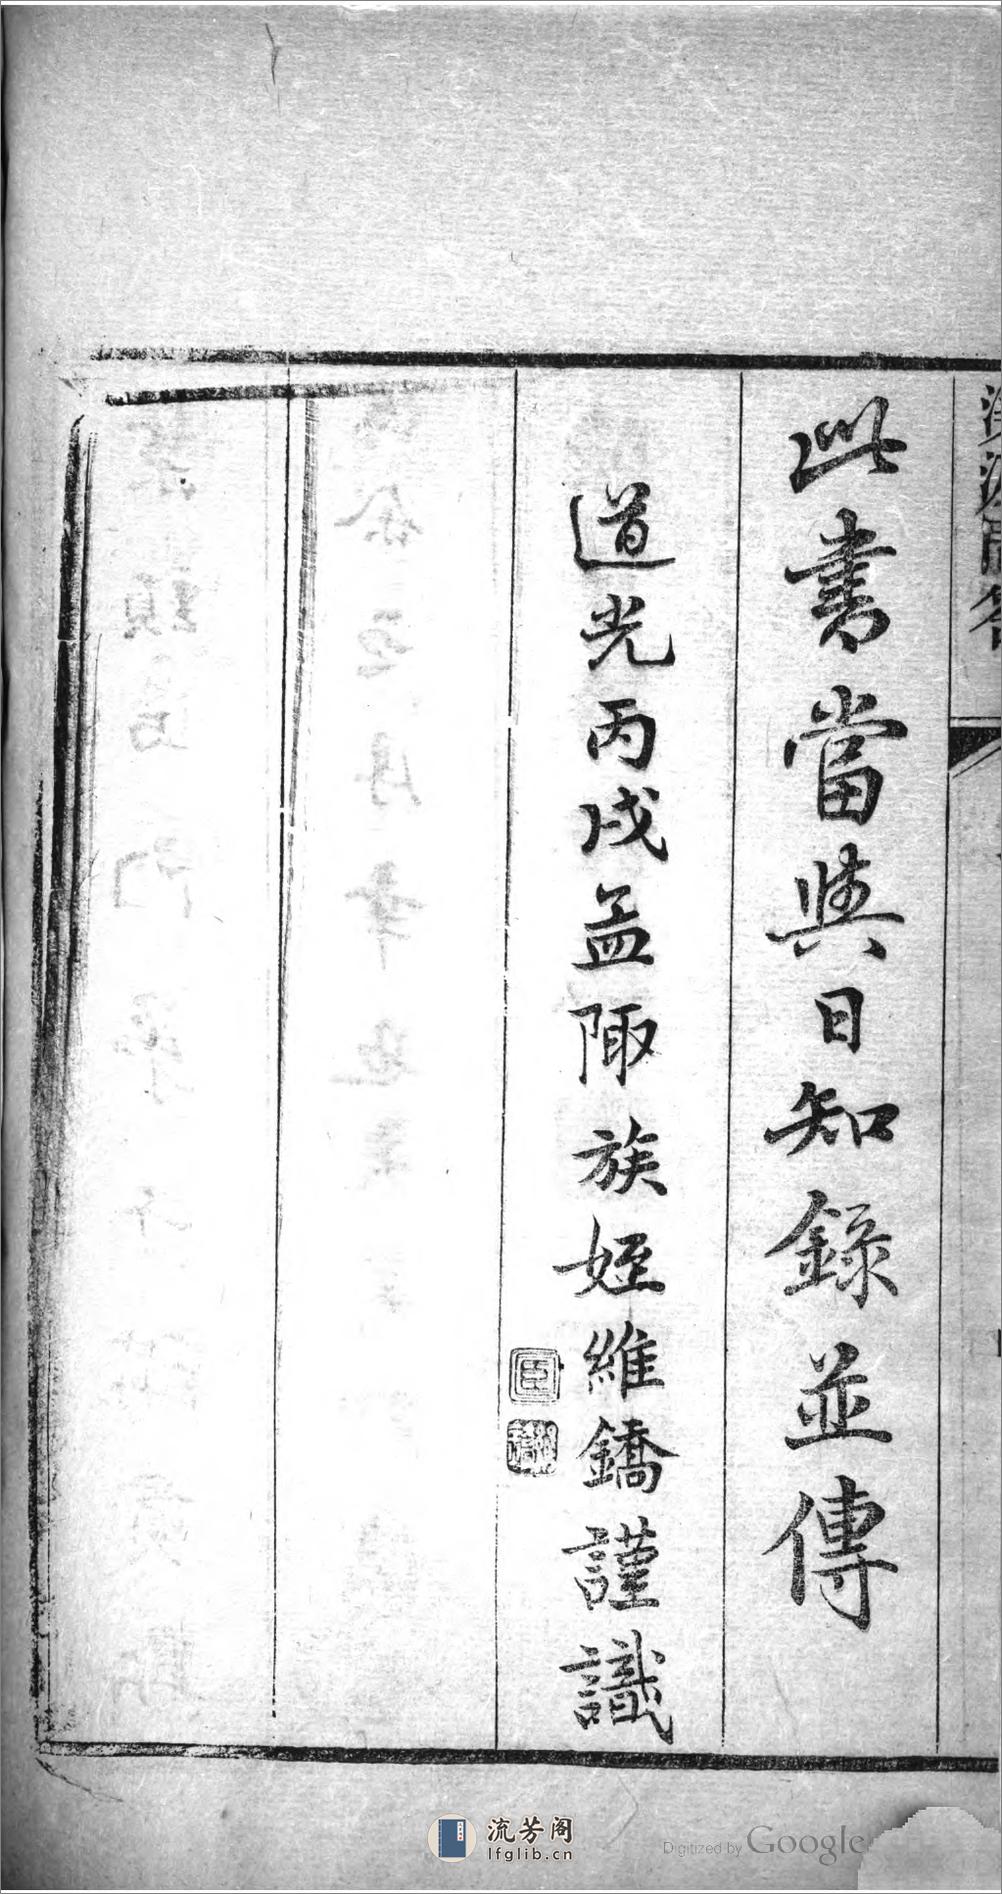 此書當與日知錄並傳
道光丙戌孟陬族姪維鐈謹識
臣
流芳阁
lfglib.cn
Digitized by Google